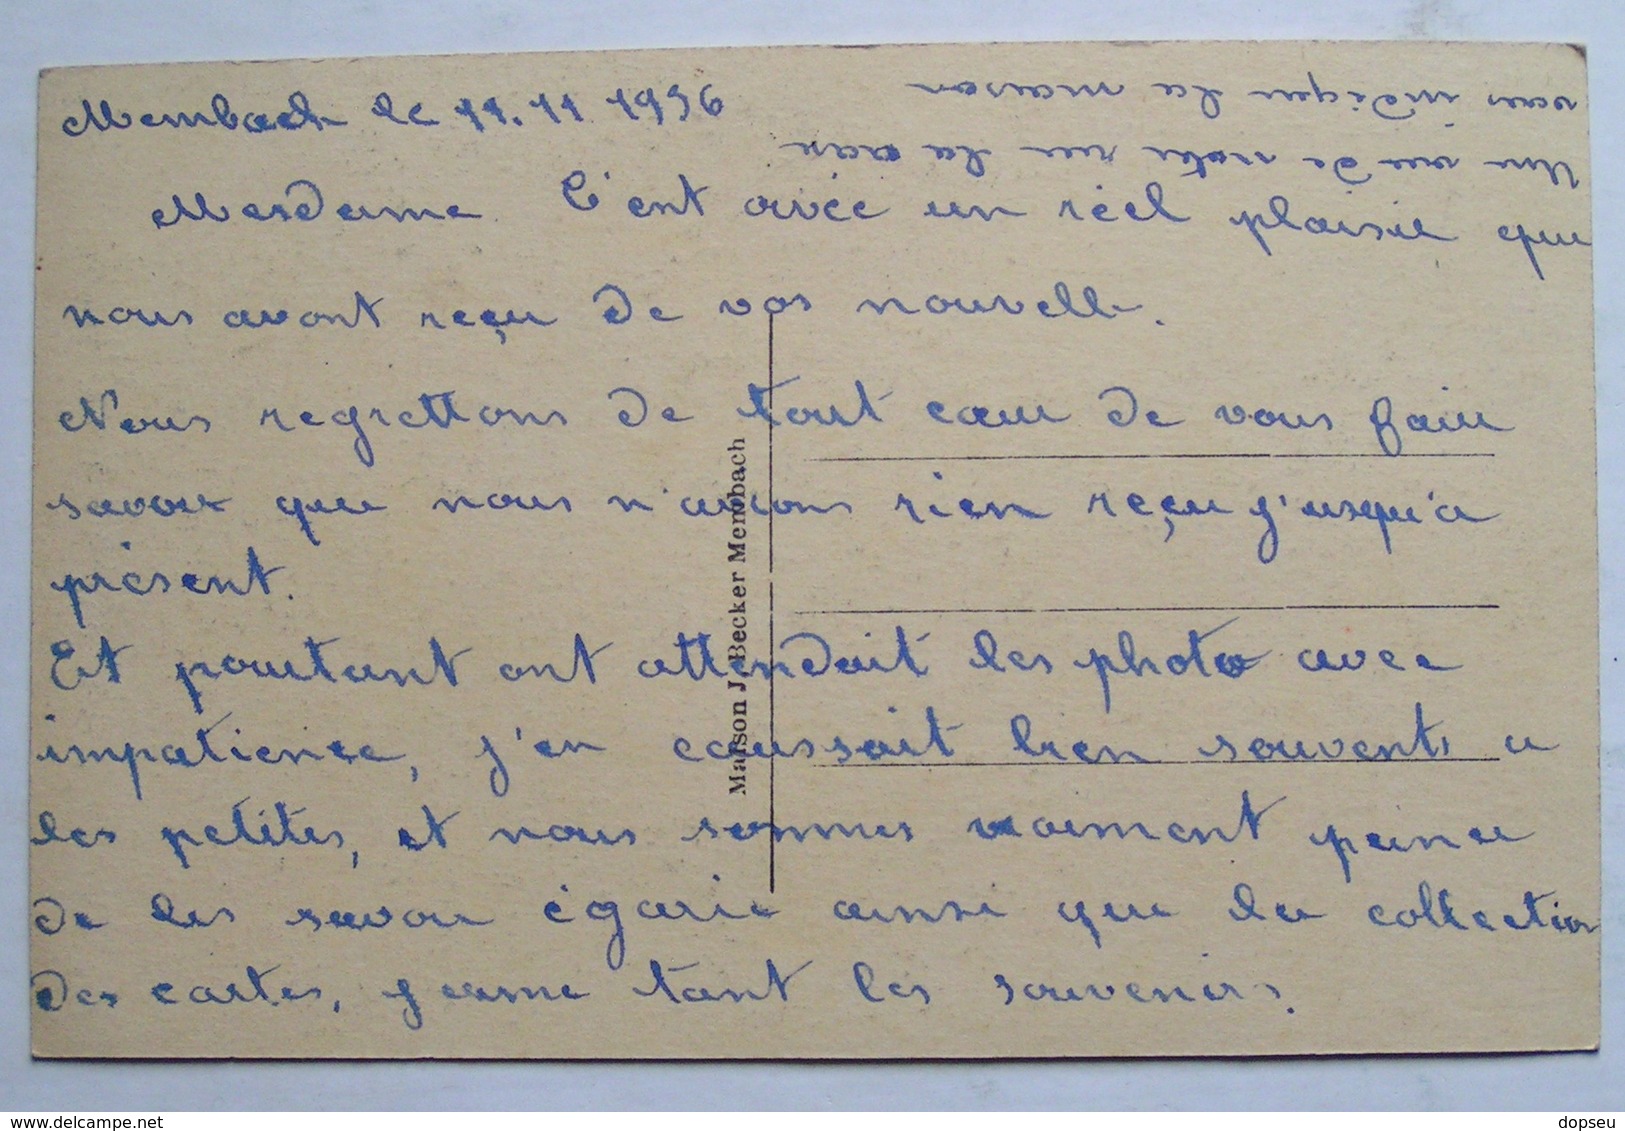 Membach le 11.11 1936
Mesdame. C'ent avéc un réel plaisir que
nous avont reçu de vos nouvelle.
Nous regrettons de tout cœur de vous faire
savoir que nous n'avions rien reçu j'usqu'a
présent.
Et pourtant ont attendait les photo avec
impatience, j'en caussait bien souvents a
les petites, et nous sommes vraiment peiner
de les savoir égarie ainsi que la collection
des cartes, j'aime tant les souvenirs.
Une vue de notre rue la croix
vous indique la maison
Maison J. Becker Membach
delcampe.net
dopseu